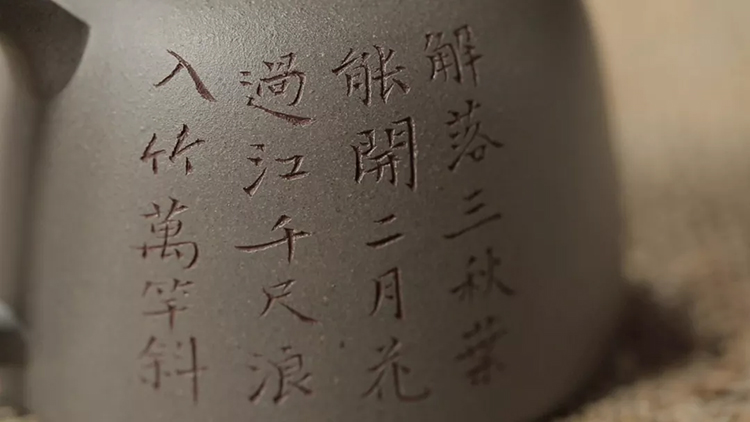 解落三秋葉
能開二月花
過江千尺浪
入竹萬竿斜